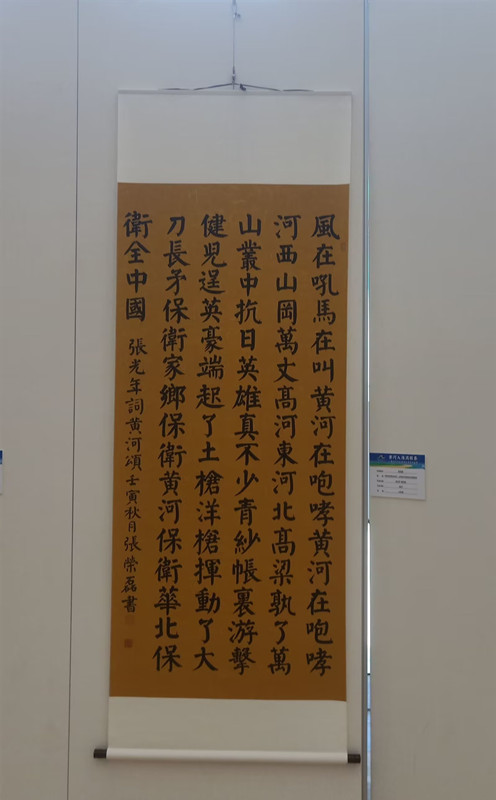 風在吼馬在叫黄河在咆哮黄河在咆哮
河西山岡萬丈髙河東河北髙粱孰了萬
山叢中抗日英雄真不少青紗帳裏游擊
健児逞英豪端起了土槍洋槍揮動了大
刀長矛保衛家鄉保衛黄河保衛華北保
衛全中國
張光年詞黄河頌壬寅秋月張榮磊書